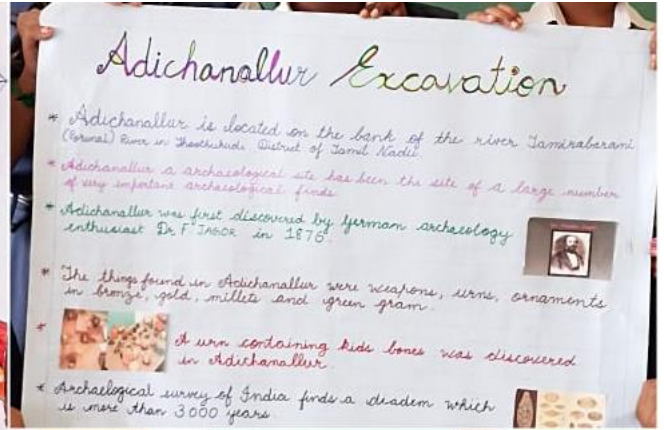 Adichanallur Excavation
* Adichanallur is located on the bank of the river Tamirabarani
(Porunai) River in Thoothukudi District of Tamil Nadu.
* Adichanallur a archaeological site has been the site of a large number
of very important archaeological finds
* Adichanallur was first discovered by German archaeology
enthusiast Dr F JAGOR in 1876.
* The things found in Adichanallur were weapons, urns, ornaments
in bronze, gold, millets and green gram.
* A urn containing kids bones was discovered
in Adichanallur.
* Archaelogical survey of India finds a deadem which
is more than 3000 years.